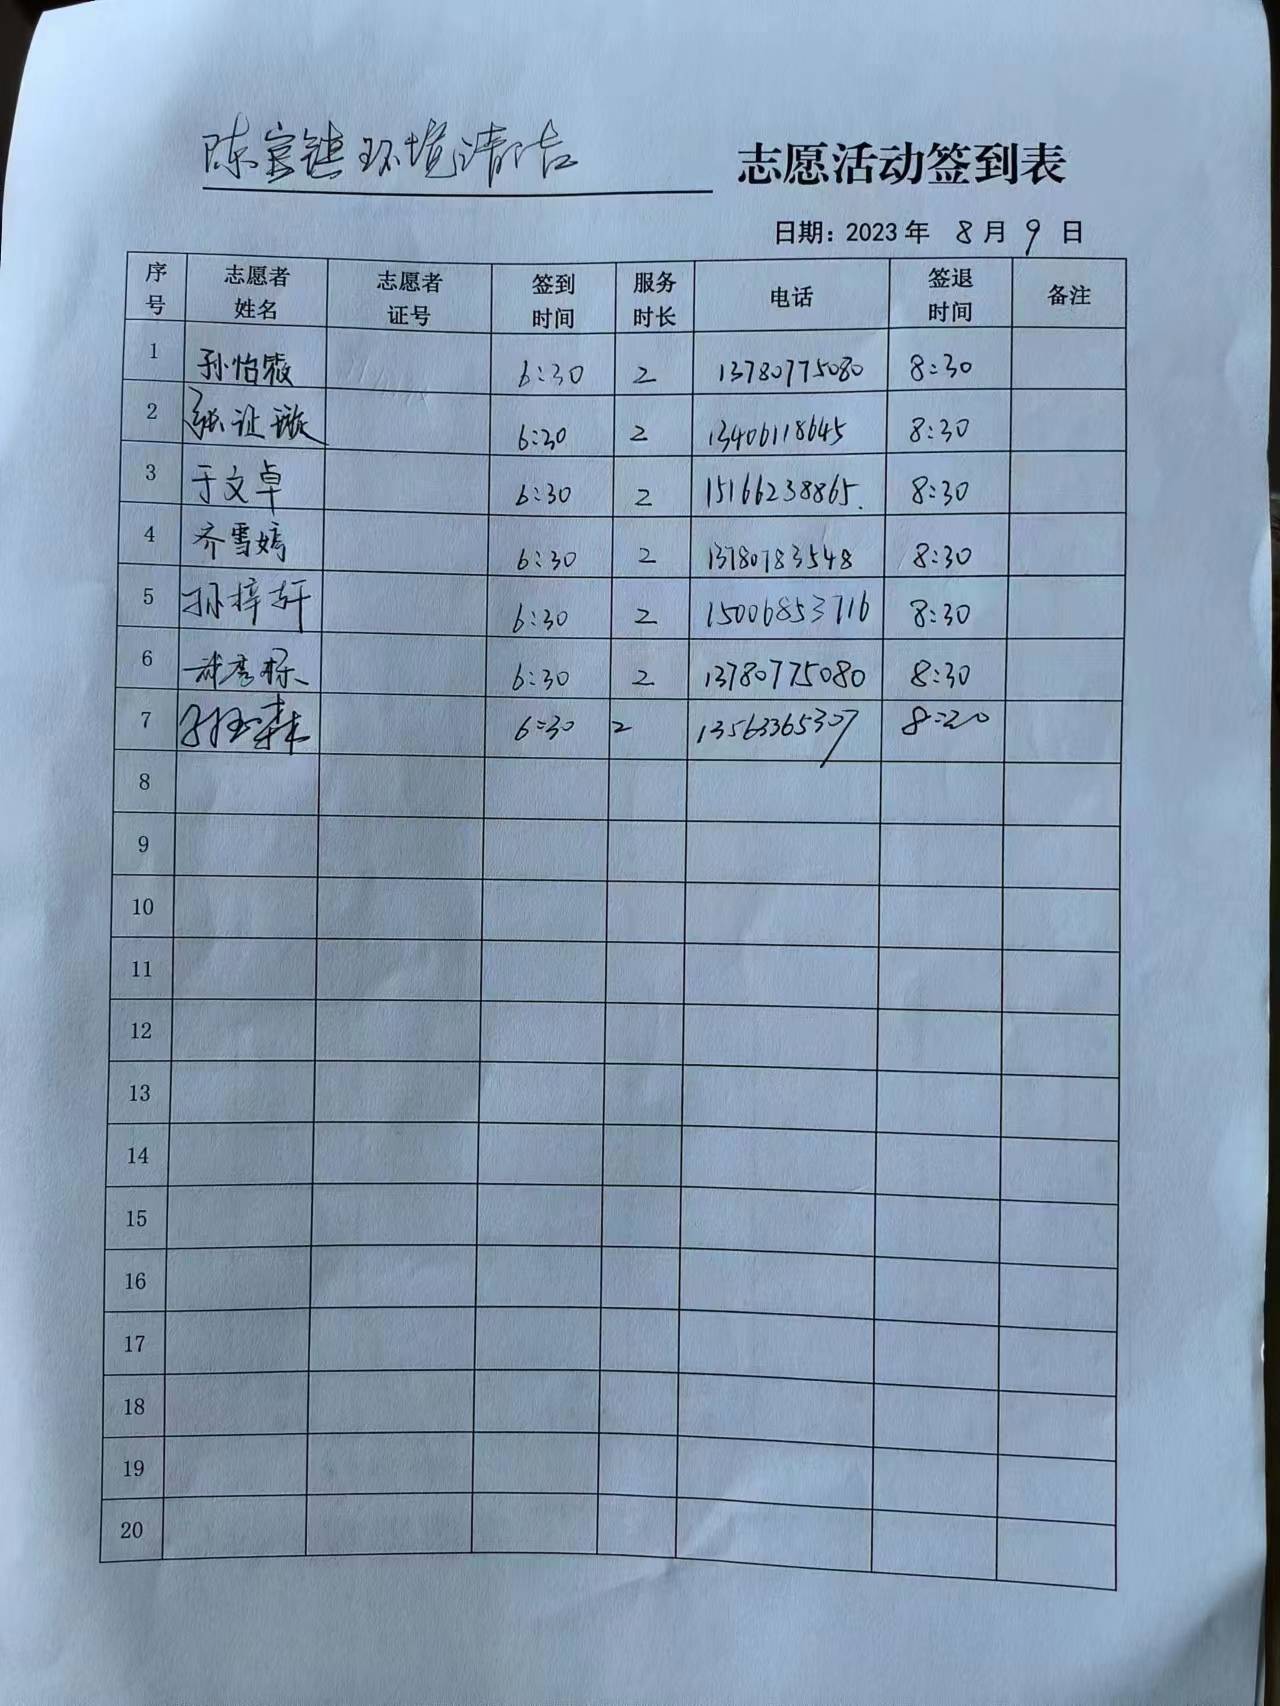 陈官镇环境清洁 志愿活动签到表
日期：2023年 8月9日
序号 志愿者姓名 志愿者证号 签到时间 服务时长 电话 签退时间 备注
1 孙怡薇 6:30 2 13780775080 8:30
2 张让璇 6:30 2 13406118645 8:30
3 于文卓 6:30 2 15166238865. 8:30
4 齐雪嫣 6:30 2 13780783548 8:30
5 孙梓轩 6:30 2 15006853716 8:30
6 6:30 2 13780775080 8:30
7 6:30 2 13563365307 8:30
8
9
10
11
12
13
14
15
16
17
18
19
20